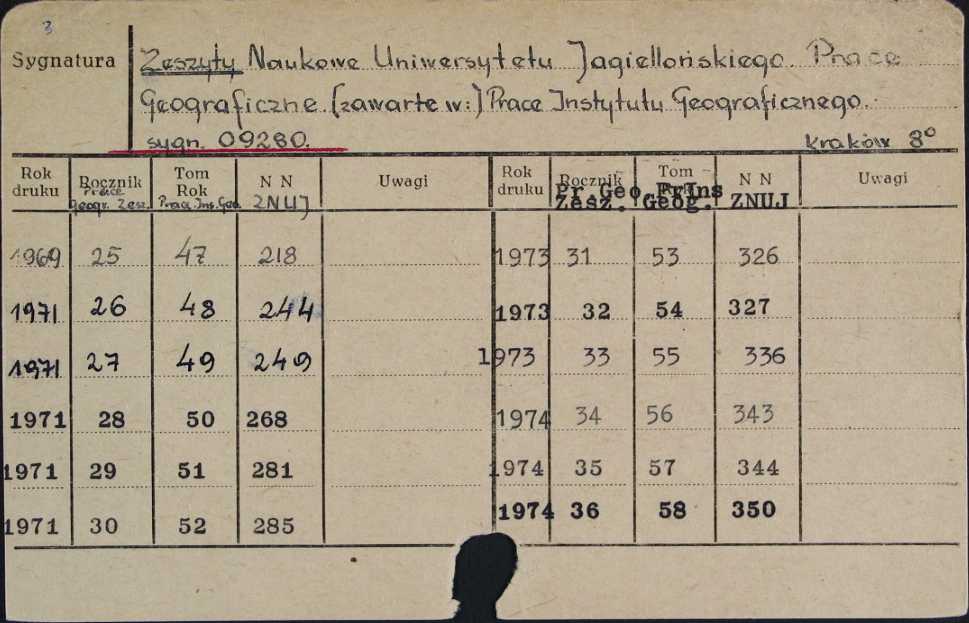 3
Sygnatura Zeszyty Naukowe Uniwersytetu Jagiellońskiego. Prace
Geograficzne. [zawarte w:] Prace Instytutu Geograficznego.
sygn. 09280. Kraków 8°
Rok druku Rocznik Prace Geogr. Zesz. Tom Rok Prace Ins. Geo. N N ZNUJ Uwagi Rok druku Rocznik Pr. Geo Zesz. Tom PrIns Geog. N N ZNUJ Uwagi
1969 25 47 218 1973 31 53 326
1971 26 48 244 1973 32 54 327
1971 27 49 249 1973 33 55 336
1971 28 50 268 1974 34 56 343
1971 29 51 281 1974 35 57 344
1971 30 52 285 1974 36 58 350